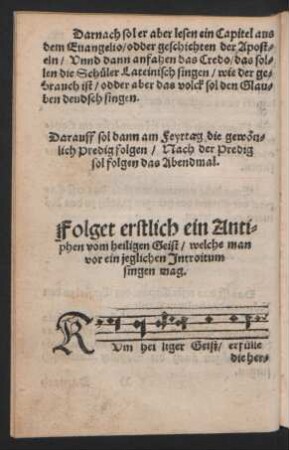 Darnach sol er aber lesen ein Capitel aus
dem Euangelio/ odder geschichten der Apost-
eln/ Vnnd dann anfahen das Credo/ das sol-
len die Schüler Lateinisch singen/ wie der ge-
brauch ist/ odder aber das volck sol den Glau-
ben deudsch singen.
Darauff sol dann am Feyttag die gewön-
lich Predig folgen/ Nach der Predig
sol folgen das Abendmal.
Folget erstlich ein Anti-
phen vom heiligen Geist/ welche man
vor ein jeglichen Introitum
singen mag.
KVm hei liger Geist/ erfülle
die her-